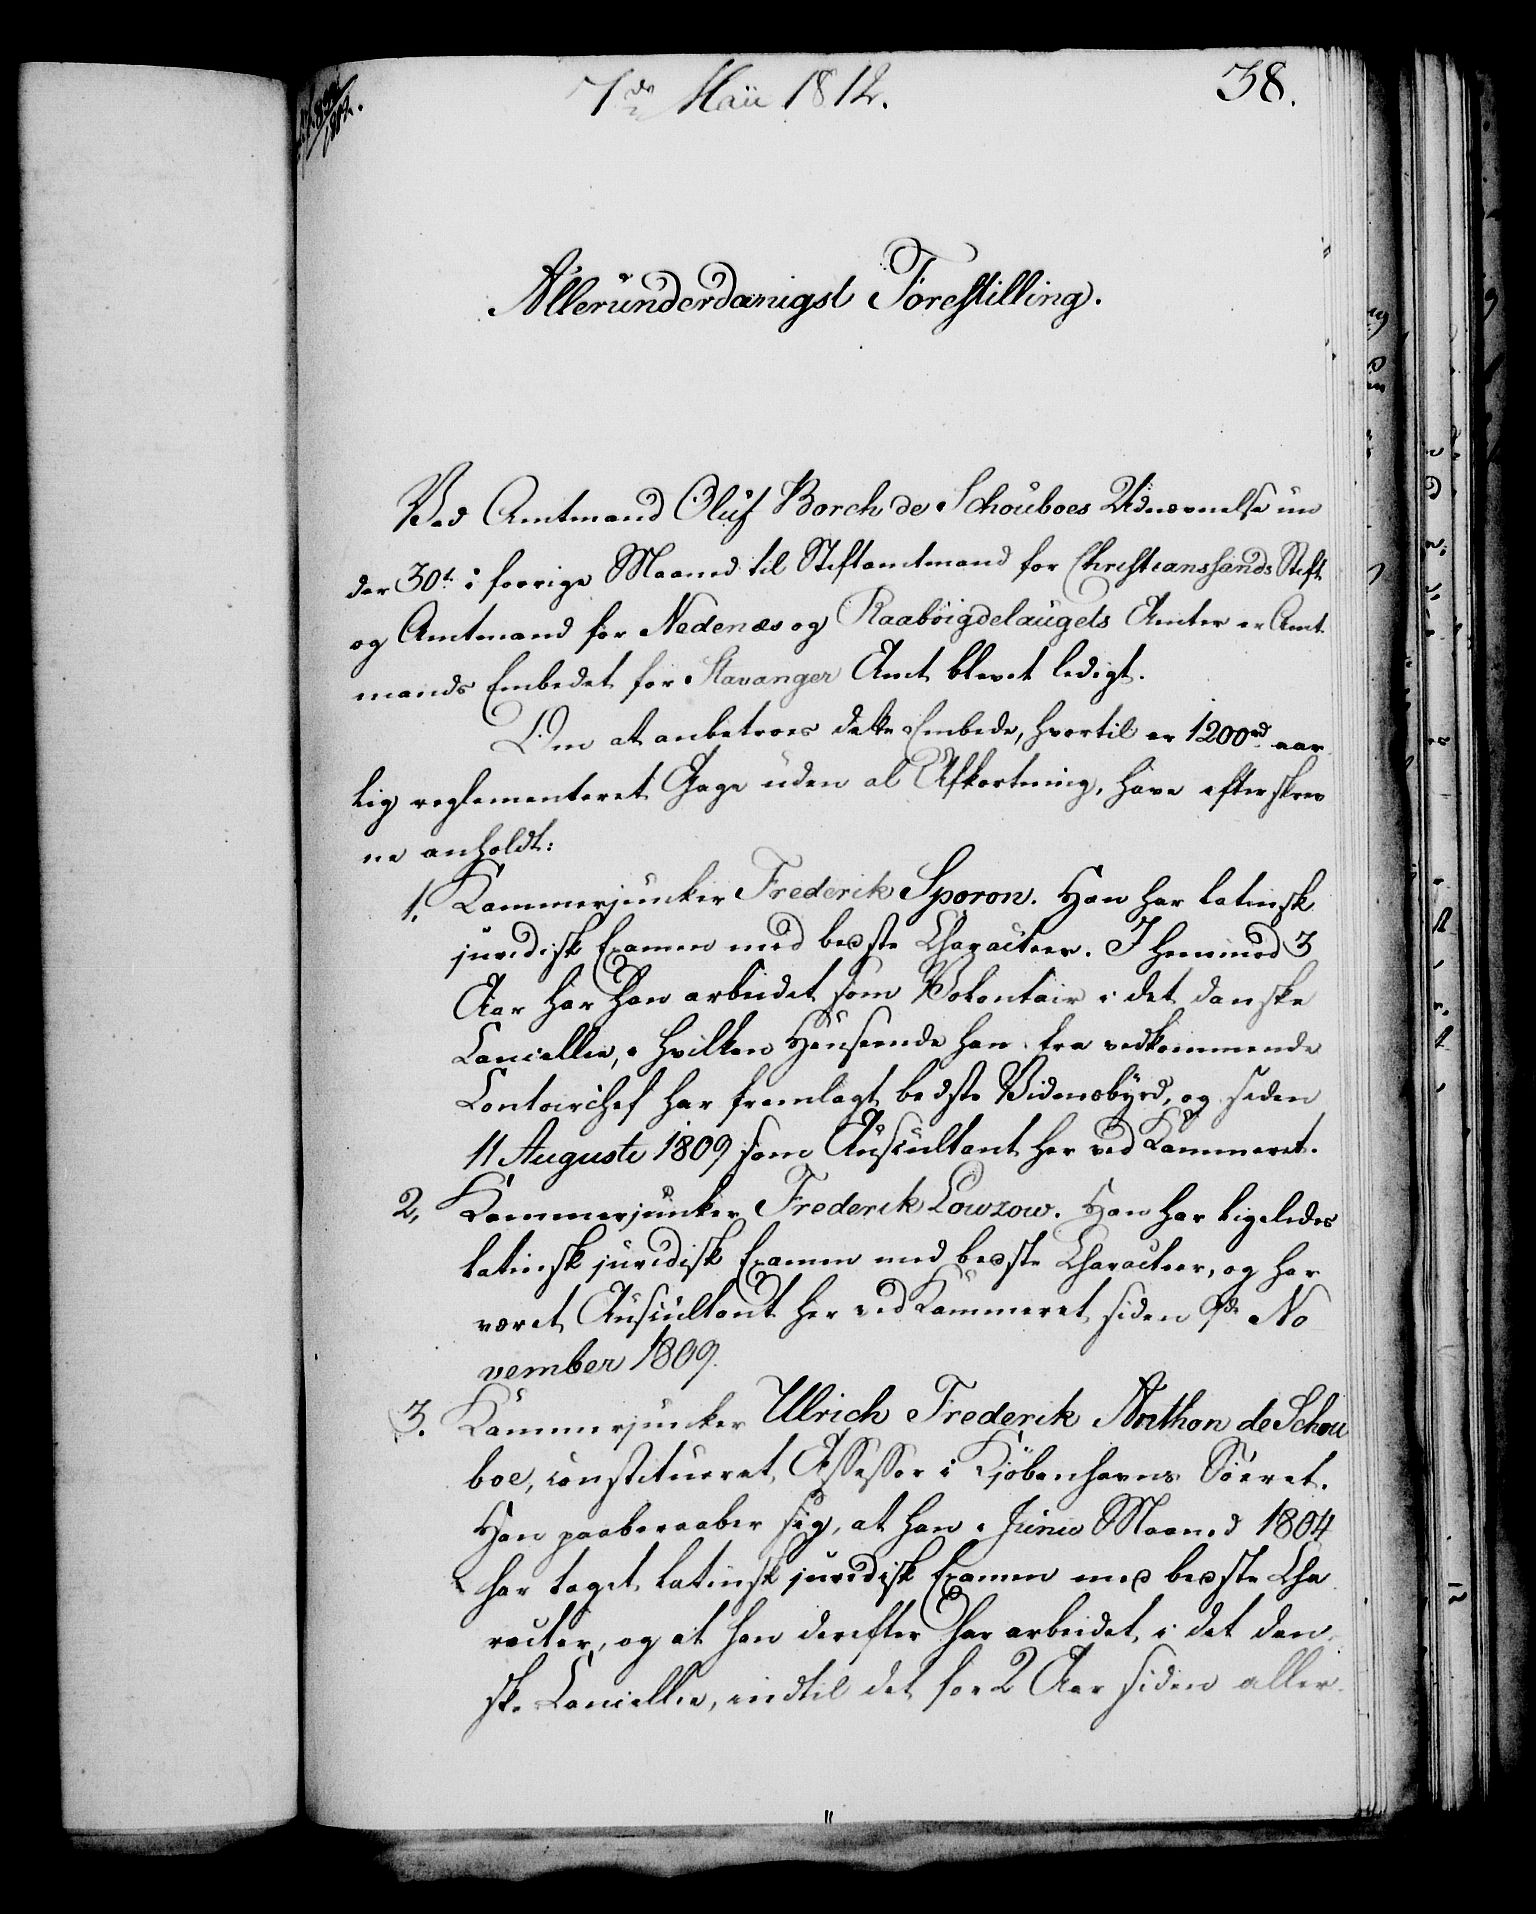 7de Maii 1812.
38.
Allerunderdanigst Forestilling.
Ved Amtmand Oluf Borch de Schouboes Udnævnelse un
der 30t i forrige Maaned til Stiftamtmand for Christianssands Stift
og Amtmand for Nedenæs og Raabÿigdelaugets Amter er Amt
mands Embedet for Stavanger Amt blevet ledigt.
Om at anbetroes dette Embede, hvortil er 1200rd aar
lig reglementeret Gage uden al Afkortning, have efterskrev
ne anholdt:
1. Kammerjunker Frederik Sporon. Han har latinsk
juridisk Examen med bedste Characteer. I henimod 3
Aar har han arbeidet som Volontair i det danske
Cancellie, i hvilken Henseende han fra vedkommende
Contoirchef har fremlagt bedste Vidensbyrd, og siden
11 Augusti 1809 som Auscultant her ved Kammeret.
2, Kammerjunker Frederik Lowzow. Han har ligeledes
latinsk juridisk Examen med bedste Characteer, og har
været Auscultant her ved Kammeret siden 9de No
vember 1809.
3. Kammerjunker Ulrich Frederik Anthon de Schou
boe, constitueret Assessor i Kjöbenhavns Söeret.
Han paaberaaber sig, at han i Junii Maaned 1804
har taget latinsk juridisk Examen med bedste Cha
racter, og at han derefter har arbeidet i det dan
ske Cancellie, indtil det for 2 Aar siden aller